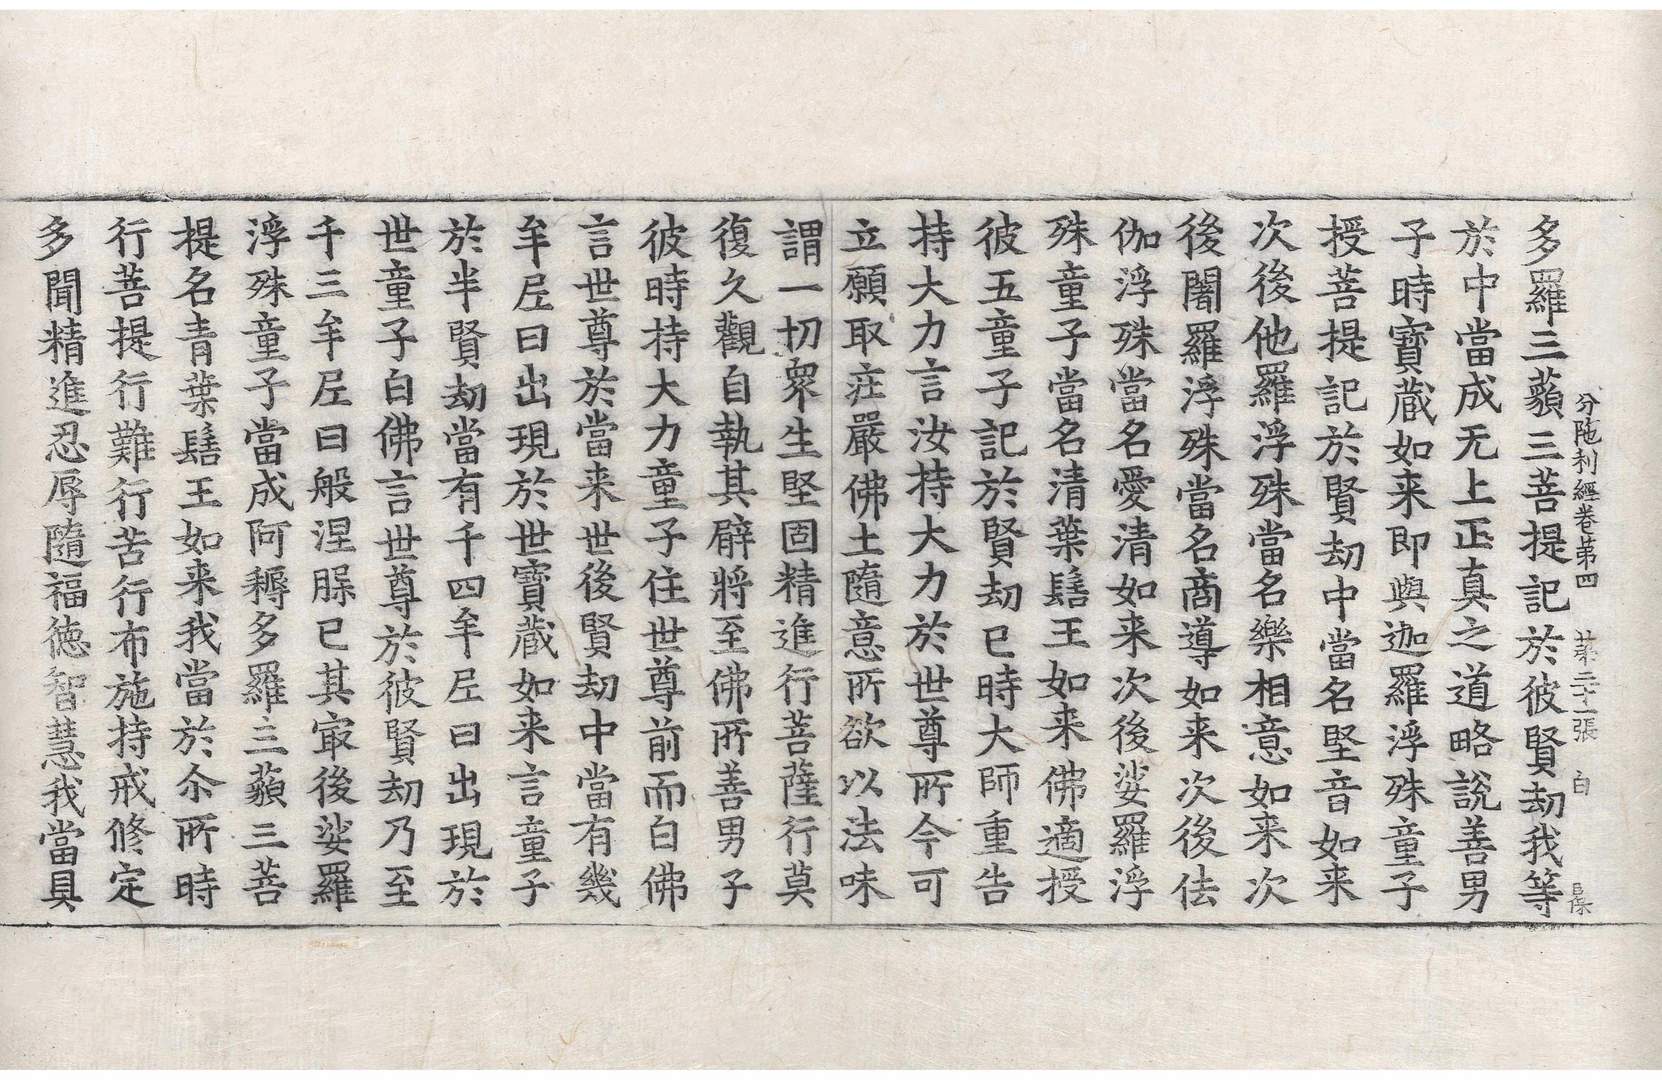 分陁利經卷第四　第二十一張　白
多羅三藐三菩提記於彼賢劫我等
於中當成无上正真之道略說善男
子時寶藏如来即與迦羅浮殊童子
授菩提記於賢劫中當名堅音如来
次後他羅浮殊當名樂相意如来次
後闍羅浮殊當名商導如来次後佉
伽浮殊當名愛清如来次後娑羅浮
殊童子當名清葉髻王如来佛適授
彼五童子記於賢劫已時大師重告
持大力言汝持大力於世尊所今可
立願取莊嚴佛土隨意所欲以法味
謂一切衆生堅固精進行菩薩行莫
復久觀自執其臂將至佛所善男子
彼時持大力童子住世尊前而白佛
言世尊於當来世後賢劫中當有幾
牟尼曰出現於世寶藏如来言童子
於半賢劫當有千四牟尼曰出現於
世童子白佛言世尊於彼賢劫乃至
千三牟尼曰般涅槃已其㝡後娑羅
浮殊童子當成阿耨多羅三藐三菩
提名青葉髻王如来我當於尒所時
行菩提行難行苦行布施持戒修定
多聞精進忍辱隨福德智慧我當具